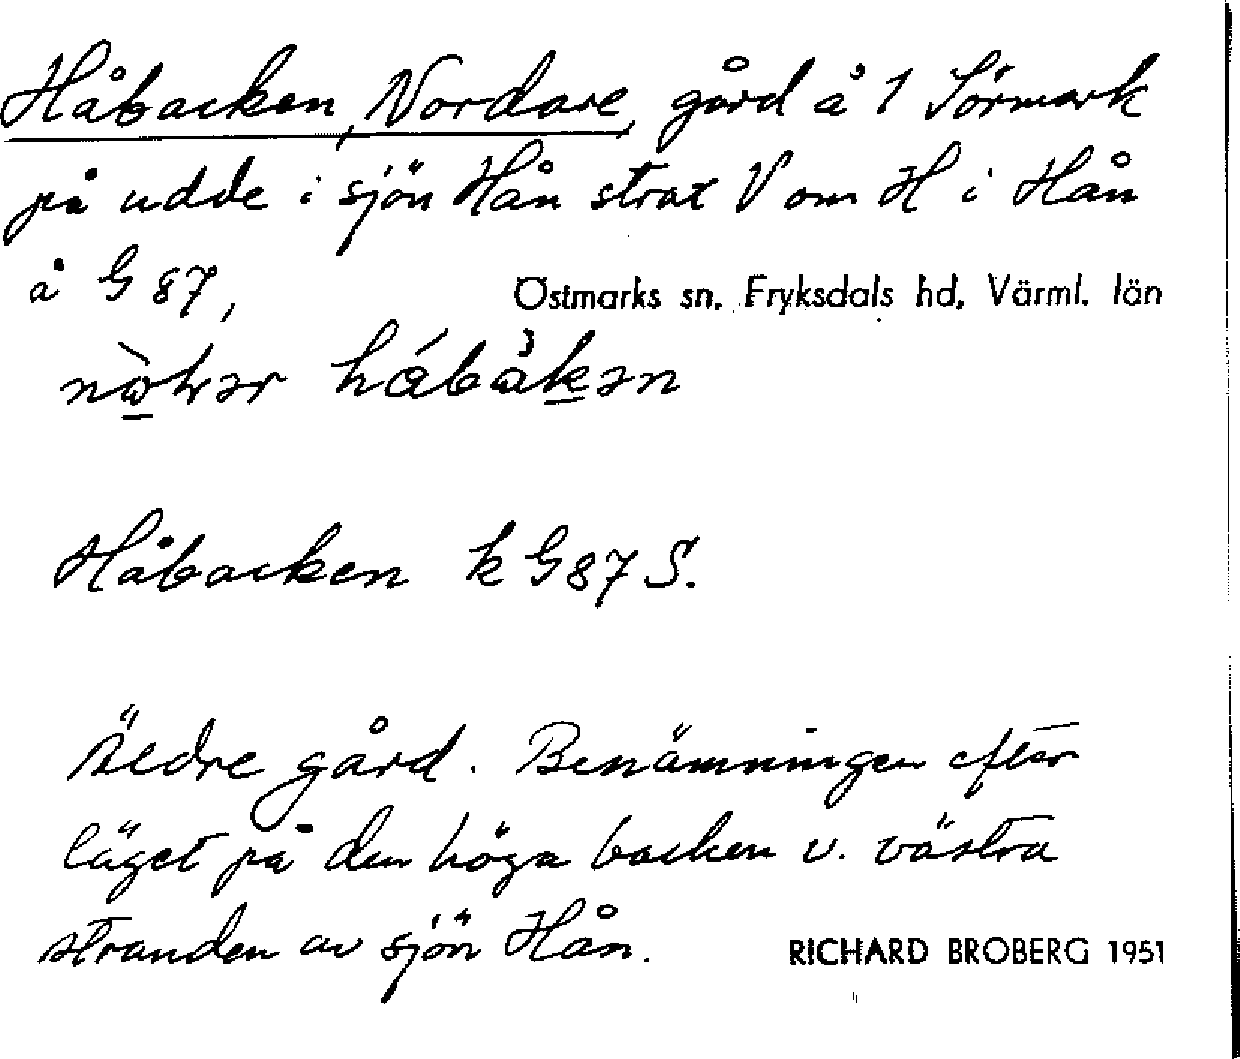 Håbacken, Nordare, gård å 1 Sörmark
på udde i sjön Hån strax V om H i Hån
å G 87,
Östmarks sn. Fryksdals hd, Värml. län
håbåkən
Håbacken k G 87 S.
Äldre gård. Benämningen efter
läget på den höga backen v. västra
stranden av sjön Hån.
RICHARD BROBERG 1951